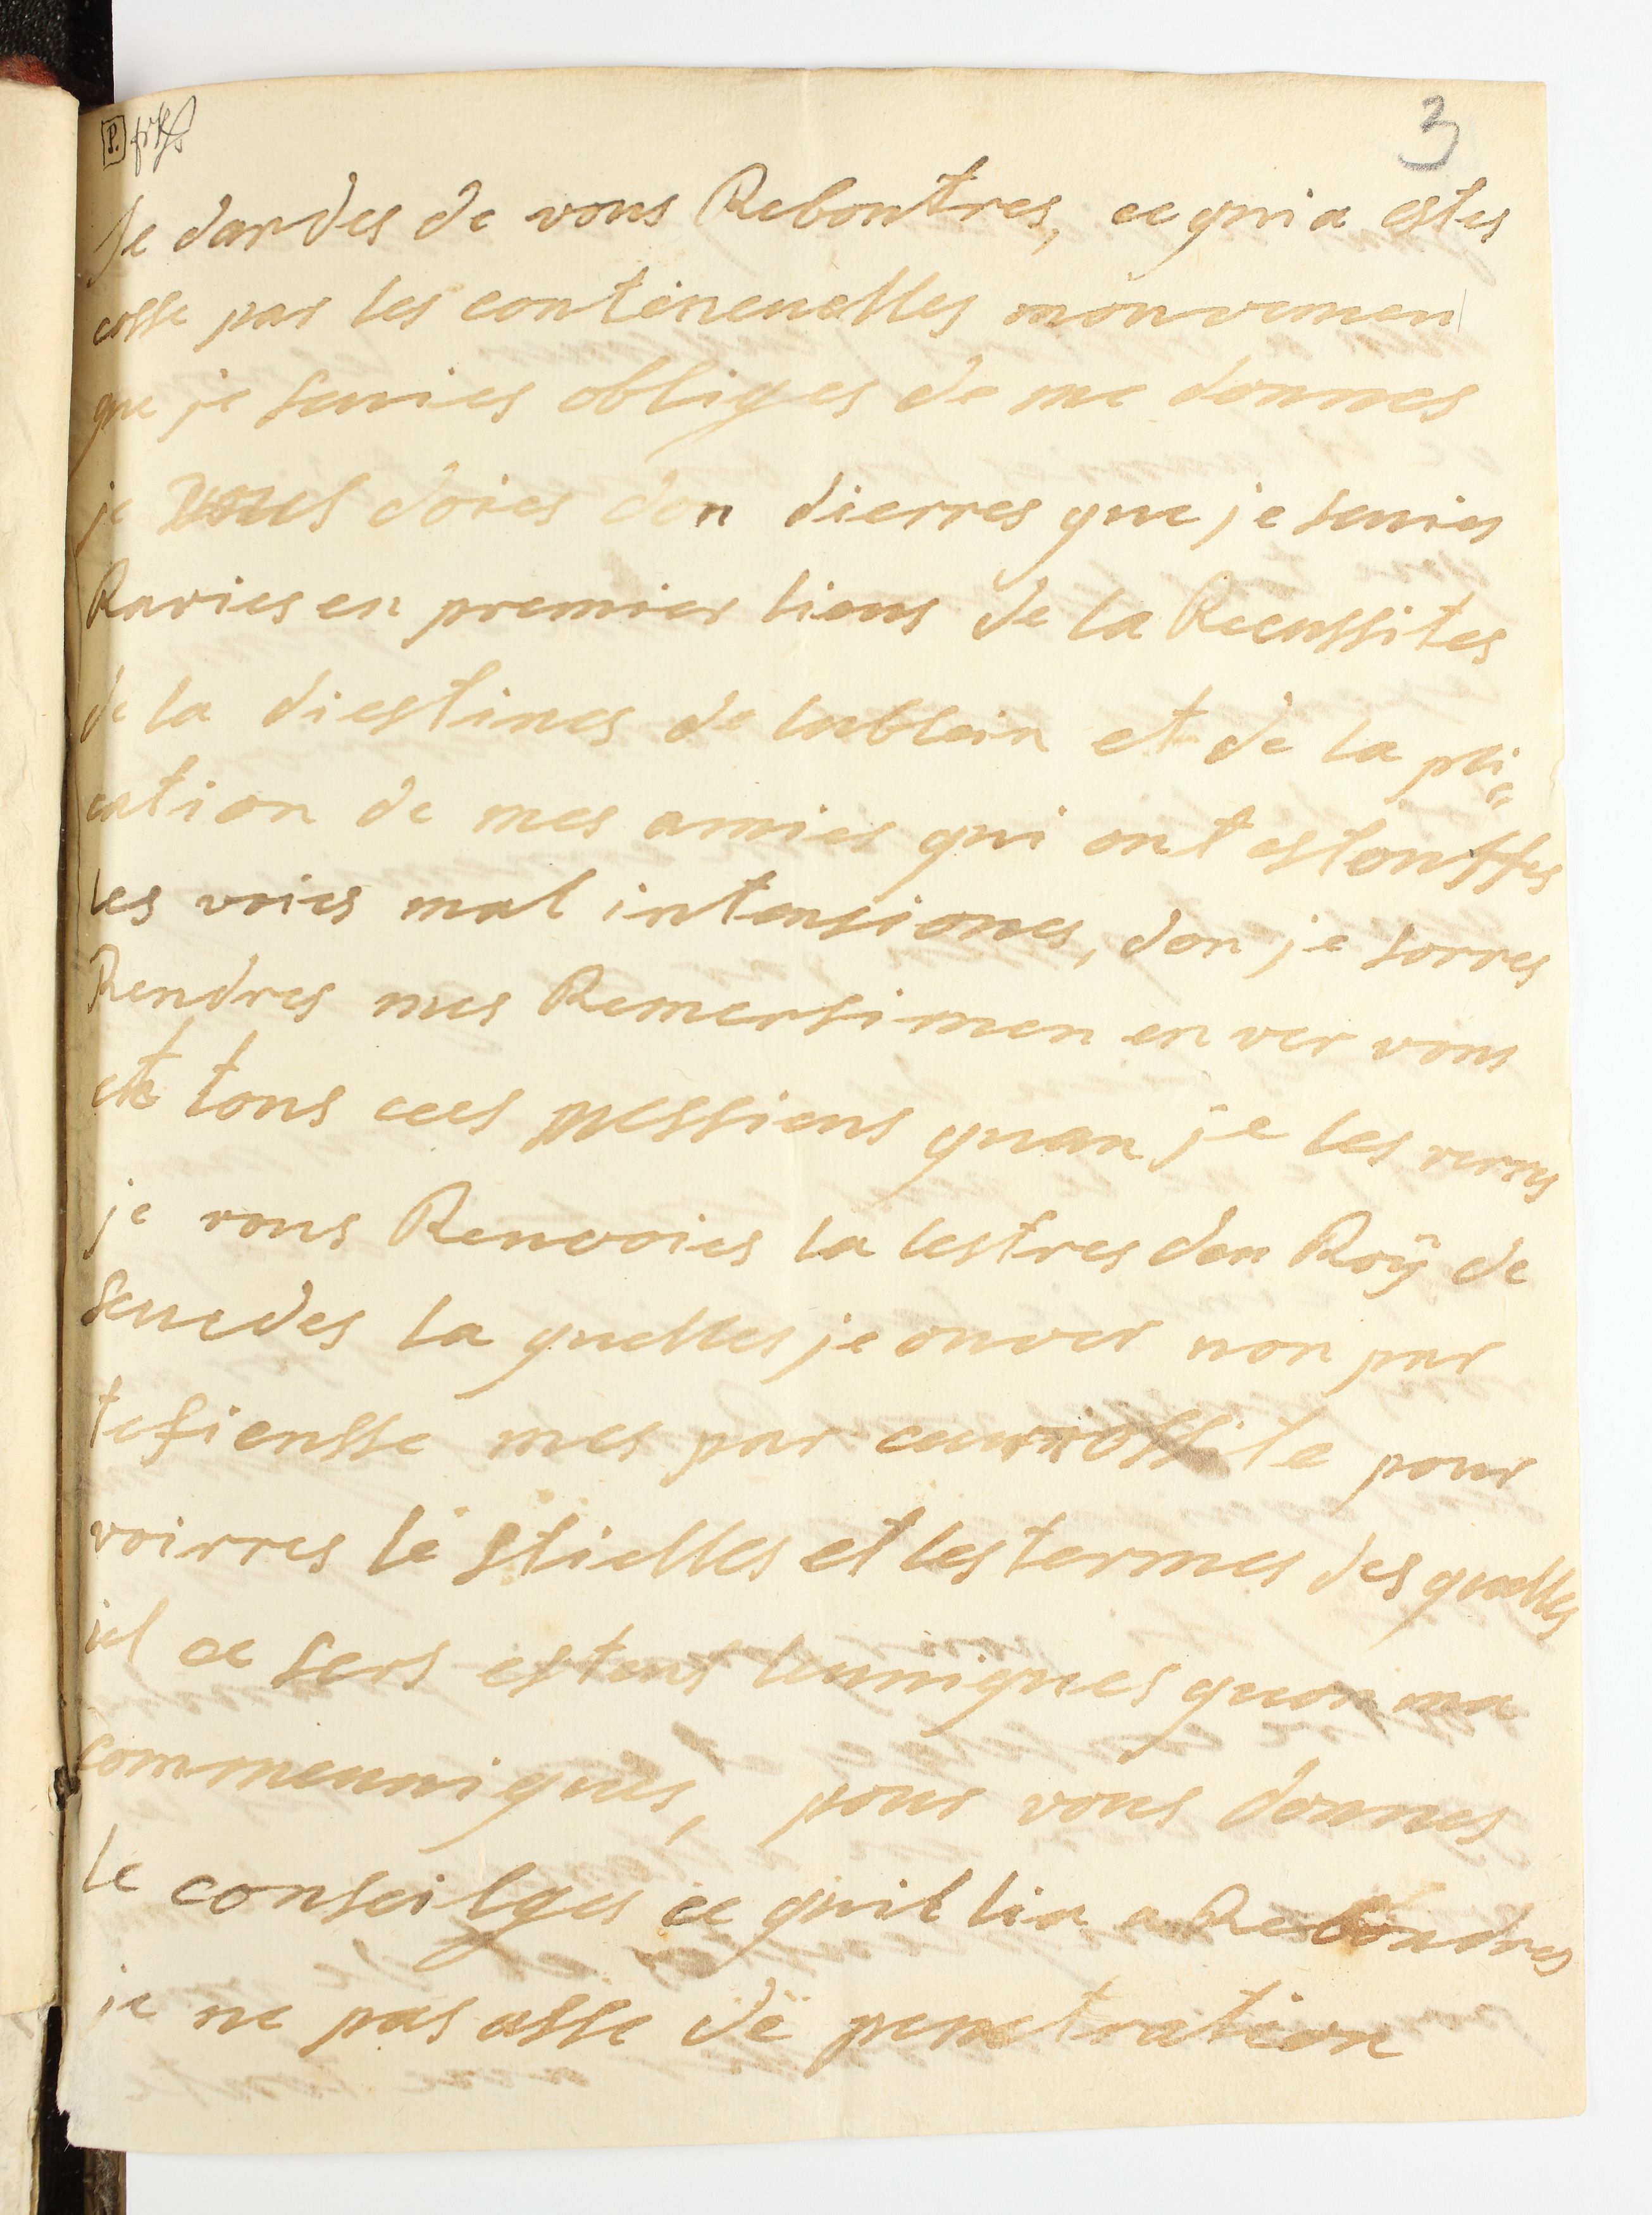 3
Je dardes de vous Rebontres, ce qui a estes
cosse par les contineuelles mouvemen
que je seuies obliges de me donnes
je vous doies don dierres que je seuies
Ravies en premier lieus de la Reeussites
de la diestines de lublein et de la pli
cation de mes amies qui ont estouffes
les voies mal intensiones, don je sorres
Rendres mes Remersimen en ver vous
et tous cees messieus quan je les verres
je vous Renvoies la lestres deu Roÿ de
seuedes la quelles je ouver non par
tefiensse mes par ceuriossite pour
voirres le stielles et les termes des quelles
iel ce sers estens leuniques quon ma
commeuniques, pour vous donnes
le conseilges ce quil lia a Rebondres
je ne pas asse de penetration